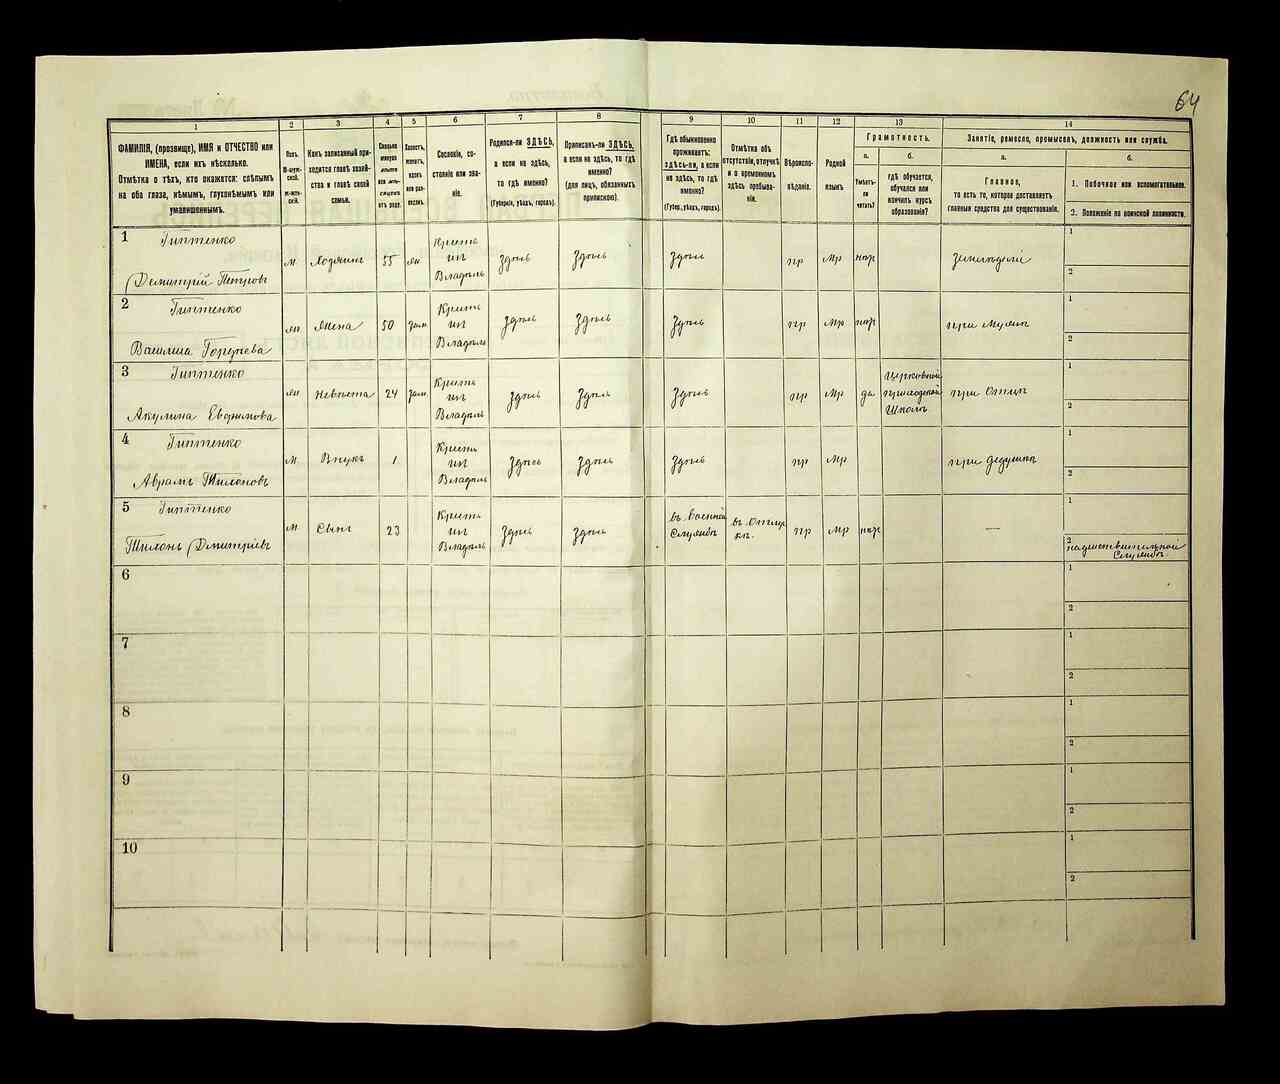 64
1 2 3 4 5 6 7 8 9 10 11 12 13 14
ФАМИЛІЯ, (прозвище), ИМЯ и ОТЧЕСТВО или
ИМЕНА, если ихъ нѣсколько.
Отмѣтка о тѣхъ, кто окажется: слѣпымъ
на оба глаза, нѣмымъ, глухонѣмымъ или
умалишеннымъ.
Полъ.
М-муж-
ской.
Ж-жен-
скій.
Какъ записанный при-
ходится главѣ хозяй-
ства и главѣ своей
семьи.
Сколько
минуло
лѣтъ
или мѣ-
сяцевъ
отъ роду.
Холостъ,
женатъ,
вдовъ
или раз-
веденъ.
Сословіе, со-
стояніе или зва-
ніе.
Родился-ли ЗДѢСЬ,
а если не здѣсь,
то гдѣ именно?
(Губернія, уѣздъ, городъ).
Приписанъ-ли ЗДѢСЬ,
а если не здѣсь, то гдѣ
именно?
(для лицъ, обязанныхъ
припискою).
Гдѣ обыкновенно
проживаетъ:
здѣсь-ли, а если
не здѣсь, то гдѣ
именно?
(Губерн., уѣздъ, городъ).
Отмѣтка объ
отсутствіи, отлучкѣ
и о временномъ
здѣсь пребыва-
ніи.
Вѣроиспо-
вѣданіе.
Родной
языкъ
Грамотность.
а. б.
Умѣетъ-
ли
читать?
гдѣ обучается,
обучался или
кончилъ курсъ
образованія?
Занятіе, ремесло, промыселъ, должность или служба.
а. б.
Главное,
то есть то, которое доставляетъ
главныя средства для существованія.
1. Побочное или вспомогательное.
2. Положеніе по воинской повинности.
1 Гиптенко
Демитрій Петровъ
м Хозяинъ 55 жн Крестъ
ип
Владѣль
здѣсь здѣсь здѣсь пр Мр нѣр земледѣлі
1
2
2 Гиптенко
Василиса
жн Жена 50 зам Крестъ
ип
Владѣль
здѣсь здѣсь здѣсь пр Мр нѣр при Мужѣ
1
2
3 Гиптенко
Акулина Ефимова
жн Невѣста 24 зам Крестъ
ип
Владѣль
здѣсь здѣсь здѣсь пр Мр да Церковной
приходской
Школѣ
при Отцѣ
1
2
4 Гиптенко
Аврамъ Тилоновъ
м Внукъ 1 Крестъ
ип
Владѣль
здѣсь здѣсь здѣсь пр Мр при дѣдушкѣ
1
2
5 Гиптенко
Тилонъ Демитріевъ
м Сынъ 23 Крестъ
ип
Владѣль
здѣсь здѣсь въ военной
Службѣ
въ Отлуч
кѣ.
пр Мр нѣр —
1
2 на действительной
Службѣ.
6 1
2
7 1
2
8 1
2
9 1
2
10 1
2